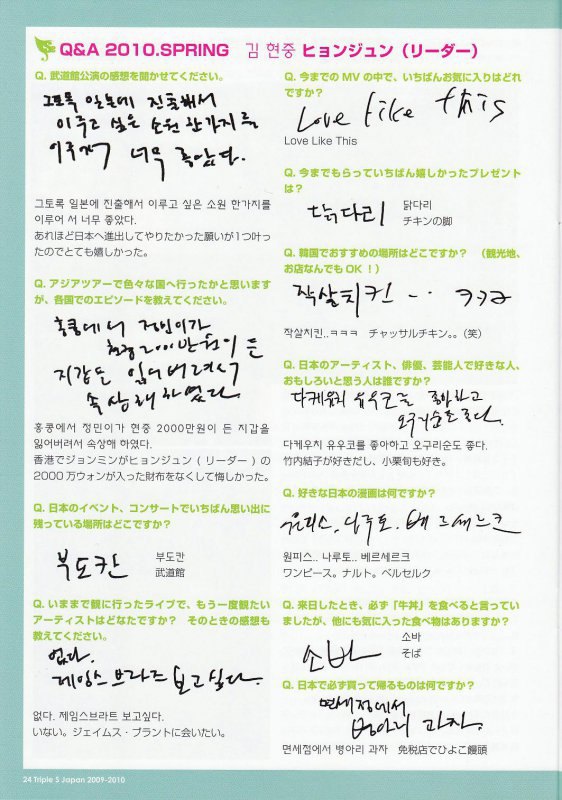 Q&A 2010.SPRING 김 현중 ヒョンジュン（リーダー）
Q. 武道館公演の感想を聞かせてください。
그토록 일본에 진출해서
이루고 싶은 소원 한가지를
이루어서 너무 좋았다.
그토록 일본에 진출해서 이루고 싶은 소원 한가지를
이루어 서 너무 좋았다.
あれほど日本へ進出してやりたかった願いが1つ叶っ
たのでとても嬉しかった。
Q. アジアツアーで色々な国へ行ったかと思います
が、各国でのエピソードを教えてください。
홍콩에서 정민이가
현중 2000만원이 든
지갑을 잃어버려서
속상해 하였다.
홍콩에서 정민이가 현중 2000만원이 든 지갑을
잃어버려서 속상해 하였다.
香港でジョンミンがヒョンジュン（リーダー）の
2000万ウォンが入った財布をなくして悔しかった。
Q. 日本のイベント、コンサートでいちばん思い出に
残っている場所はどこですか？
부도칸
부도칸
武道館
Q. いままで観に行ったライブで、もう一度観たい
アーティストはどなたですか？ そのときの感想も
教えてください。
없다.
제임스 브라트 보고싶다.
없다. 제임스브라트 보고싶다.
いない。ジェイムス・ブラントに会いたい。
Q. 今までのMVの中で、いちばんお気に入りはどれ
ですか？
Love like this
Love Like This
Q. 今までもらっていちばん嬉しかったプレゼント
は？
닭다리
닭다리
チキンの脚
Q. 韓国でおすすめの場所はどこですか？ （観光地、
お店なんでもOK！）
작살치킨.. ㅋㅋㅋ
작살치킨..ㅋㅋㅋ チャッサルチキン。。（笑）
Q. 日本のアーティスト、俳優、芸能人で好きな人、
おもしろいと思う人は誰ですか？
다케우치 유우코를 좋아하고
오구리순도 좋다.
다케우치 유우코를 좋아하고 오구리순도 좋다.
竹内結子が好きだし、小栗旬も好き。
Q. 好きな日本の漫画は何ですか？
원피스. 나루토. 베르세르크
원피스.. 나루토.. 베르세르크
ワンピース。ナルト。ベルセルク
Q. 来日したとき、必ず「牛丼」を食べると言ってい
ましたが、他にも気に入った食べ物はありますか？
소바
소바
そば
Q. 日本で必ず買って帰るものは何ですか？
면세점에서
병아리 과자.
면세점에서 병아리 과자 免税店でひよこ饅頭
24 Triple S Japan 2009-2010